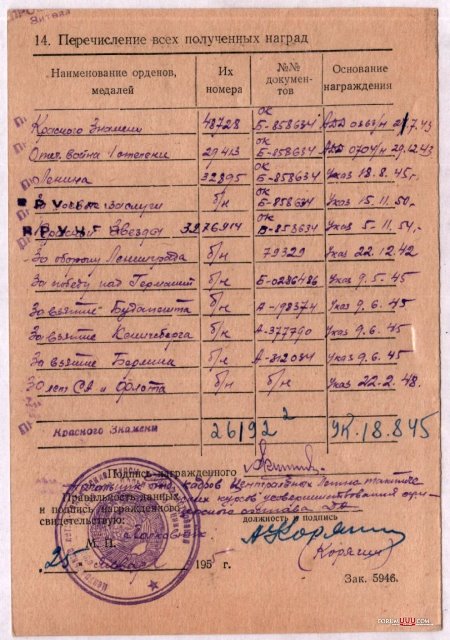 14. Перечисление всех полученных наград
Наименование орденов, медалей
Их номера
№№ документов
Основание награждения
Красного Знамени 48728 ОК Б-858634
Отеч. война 1 степени 29413 ОК Б-858634 29.12.43
Ленина 32895 ОК Б-858634 Указ 18.8.45г.
заслуги б/н ОК Б-858634 Указ 15.11.50г.
Звезды 3276914 ОК Указ 5.11.54г.
За оборону Ленинграда б/н 79329 Указ 22.12.42
За победу над Германией б/н Б-0286486 Указ 9.5.45
За взятие Будапешта б/н А-198374 Указ 9.6.45
За взятие Кенигсберга б/н А-377790 Указ 9.6.45
За взятие Берлина б/н А-812084 Указ 9.6.45
30 лет СА и Флота б/н б/н Указ 22.2.48.
Красного Знамени 26192 2 УК.18.845
Подпись награжденного
кадров Центральных Летно тактиче
Правильность данных
ских курсов усовершенствования офи-
и подпись награжденного
церского состава
свидетельствую:
должность и подпись
М. П.
Полковник
(Корягин)
"25" января 1955 г.
Зак. 5946.
FORUM.UUU.COM